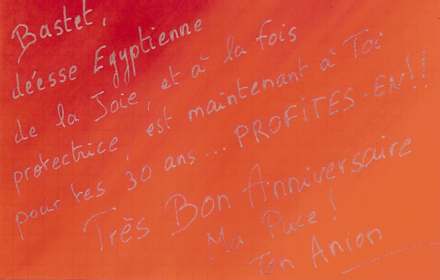 Bastet,
déesse Egyptienne
de la Joie, et à la fois
protectrice, est maintenant à Toi
pour tes 30 ans... PROFITES-EN!!
Très Bon Anniversaire
Ma Puce!
Ton Anion